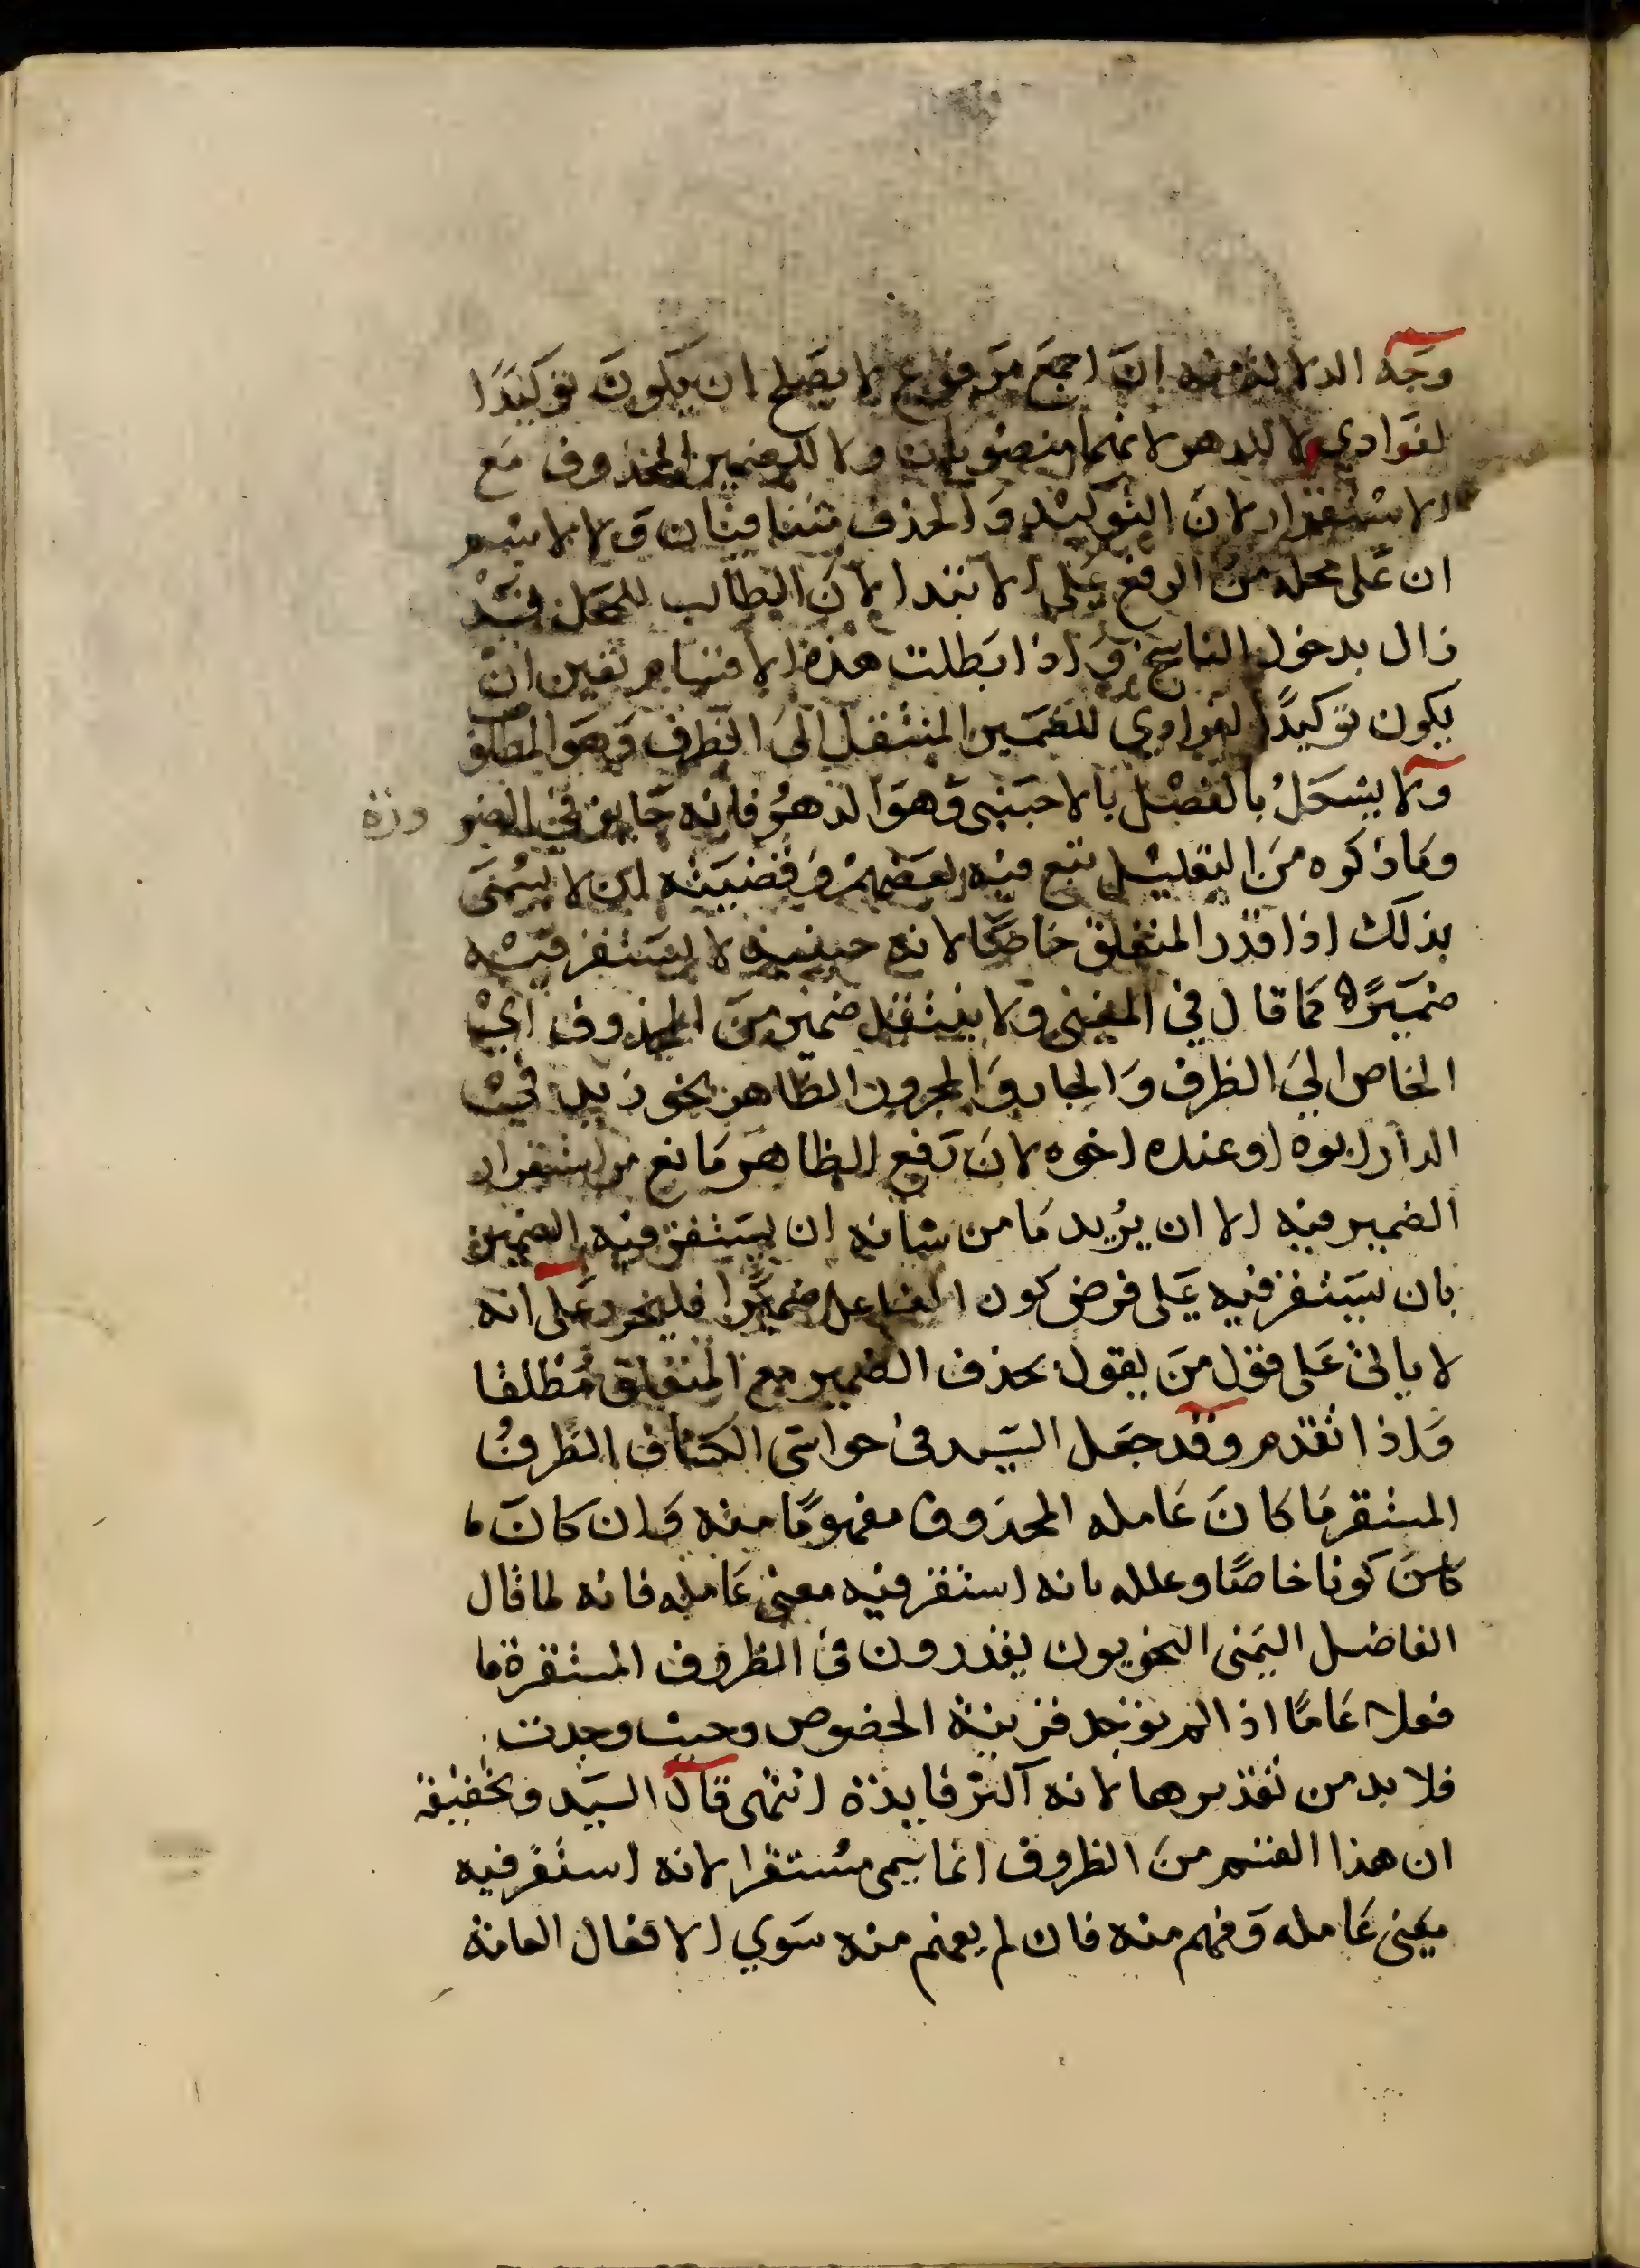 وجه الدلالة منه ان اجمع مرفوع لا يصلح ان يكون توكيدا
لفوادي لا للدهر لانهما منصوبان ولا للضمير المحذوف مع
الاستقرار لان التوكيد والحذف متنافيان ولا لاسم
ان على محله من الرفع على الابتدا لان الطالب للمحل قد
زال بدخول الناسخ واذا بطلت هذه الاقسام تعين ان
يكون توكيدا للضمير المنتقل الى الظرف وهو المطلوب
ولا يشكل بالفصل بالاجنبى وهو الدهر فانه جايز في الضرورة
وما ذكره من التعليل تبع فيه بعضهم وقضيته ان لا يسمى
بذلك اذا قدر المتعلق خاصا لانه حينيذ لا يستقر فيه
ضميرا كما قال في المغني ولا ينتقل ضمير من المحذوف اي
الخاص الى الظرف والجار والمجرور الظاهر نحو زيد في
الدار ابوه او عنده اخوه لان رفع الظاهر مانع من استقرار
الضمير فيه الا ان يريد ما من شانه ان يستقر فيه الضمير
بان يستقر فيه على فرض كون الفاعل ضميرا فليحرر على انه
لا ياتى على قول من يقول بحذف الضمير مع المتعلق مطلقا
واذا تقدم وقد جعل السيد فى حواشى الكشاف الظرف
المستقر ما كان عامله المحذوف مفهوما منه وان كان
كونا خاصا وعلله بانه استقر فيه معنى عامله فانه لما قال
الفاضل اليمنى النحويون يقدرون فى الظروف المستقرة
فعلا عاما اذا لم توجد قرينة الخصوص وحيث وجدت
فلا بد من تقديرها لانه اكثر فايدة انتهى قال السيد وتحقيقه
ان هذا القسم من الظروف انما يسمى مستقرا لانه استقر فيه
معنى عامله وفهم منه فان لم يفهم منه سوي الافعال العامة